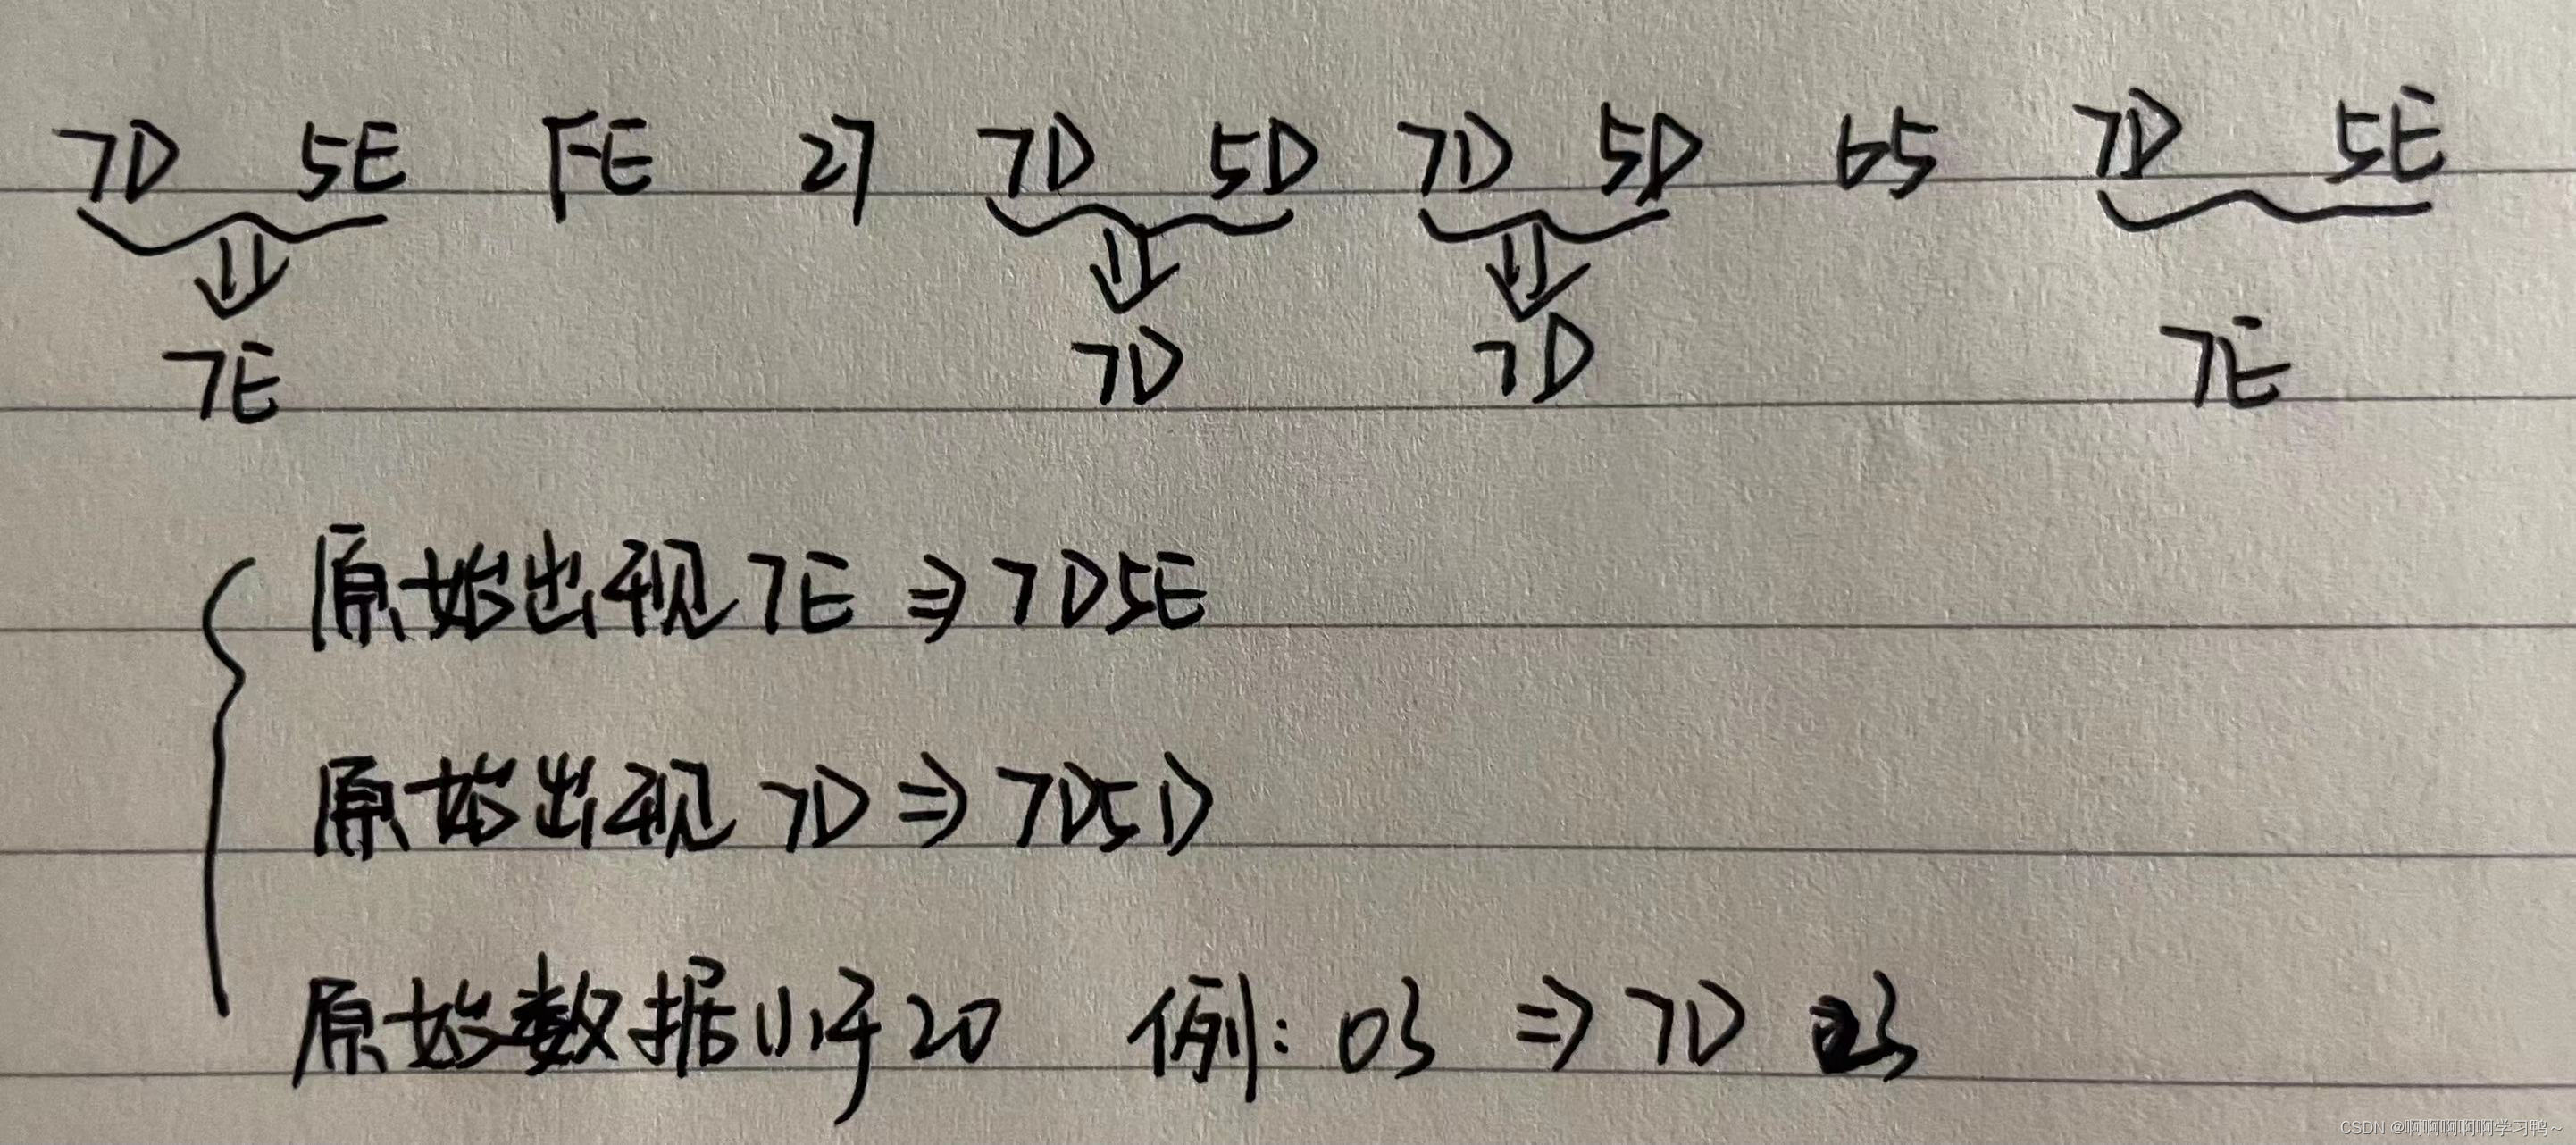 7D 5E FE 27 7D 5D 7D 5D 65 7D 5E
7E 7D 7D 7E
原始出现 7E ⇒ 7D5E
原始出现 7D ⇒ 7D5D
原始数据小于20 例: 03 ⇒ 7D 23
CSDN @啊啊啊啊啊学习鸭~